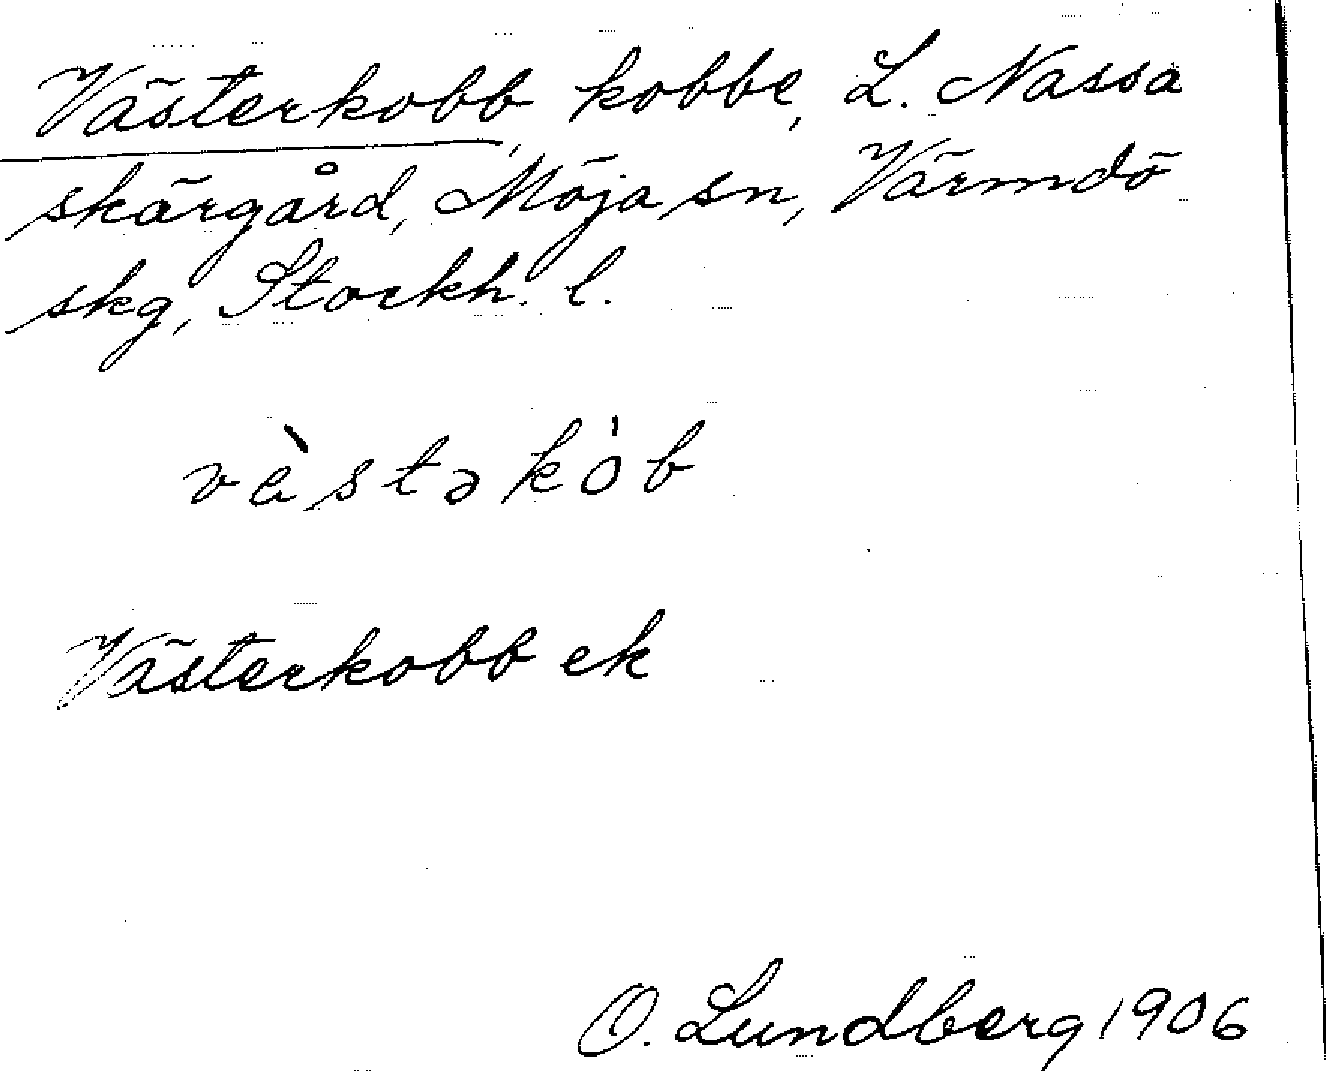 Västerkobb, kobbe, L. Nassa
skärgård, Möja sn, Värmdö
skg, Stockh. l.
vèstəkób
Västerkobb ek
O. Lundberg 1906